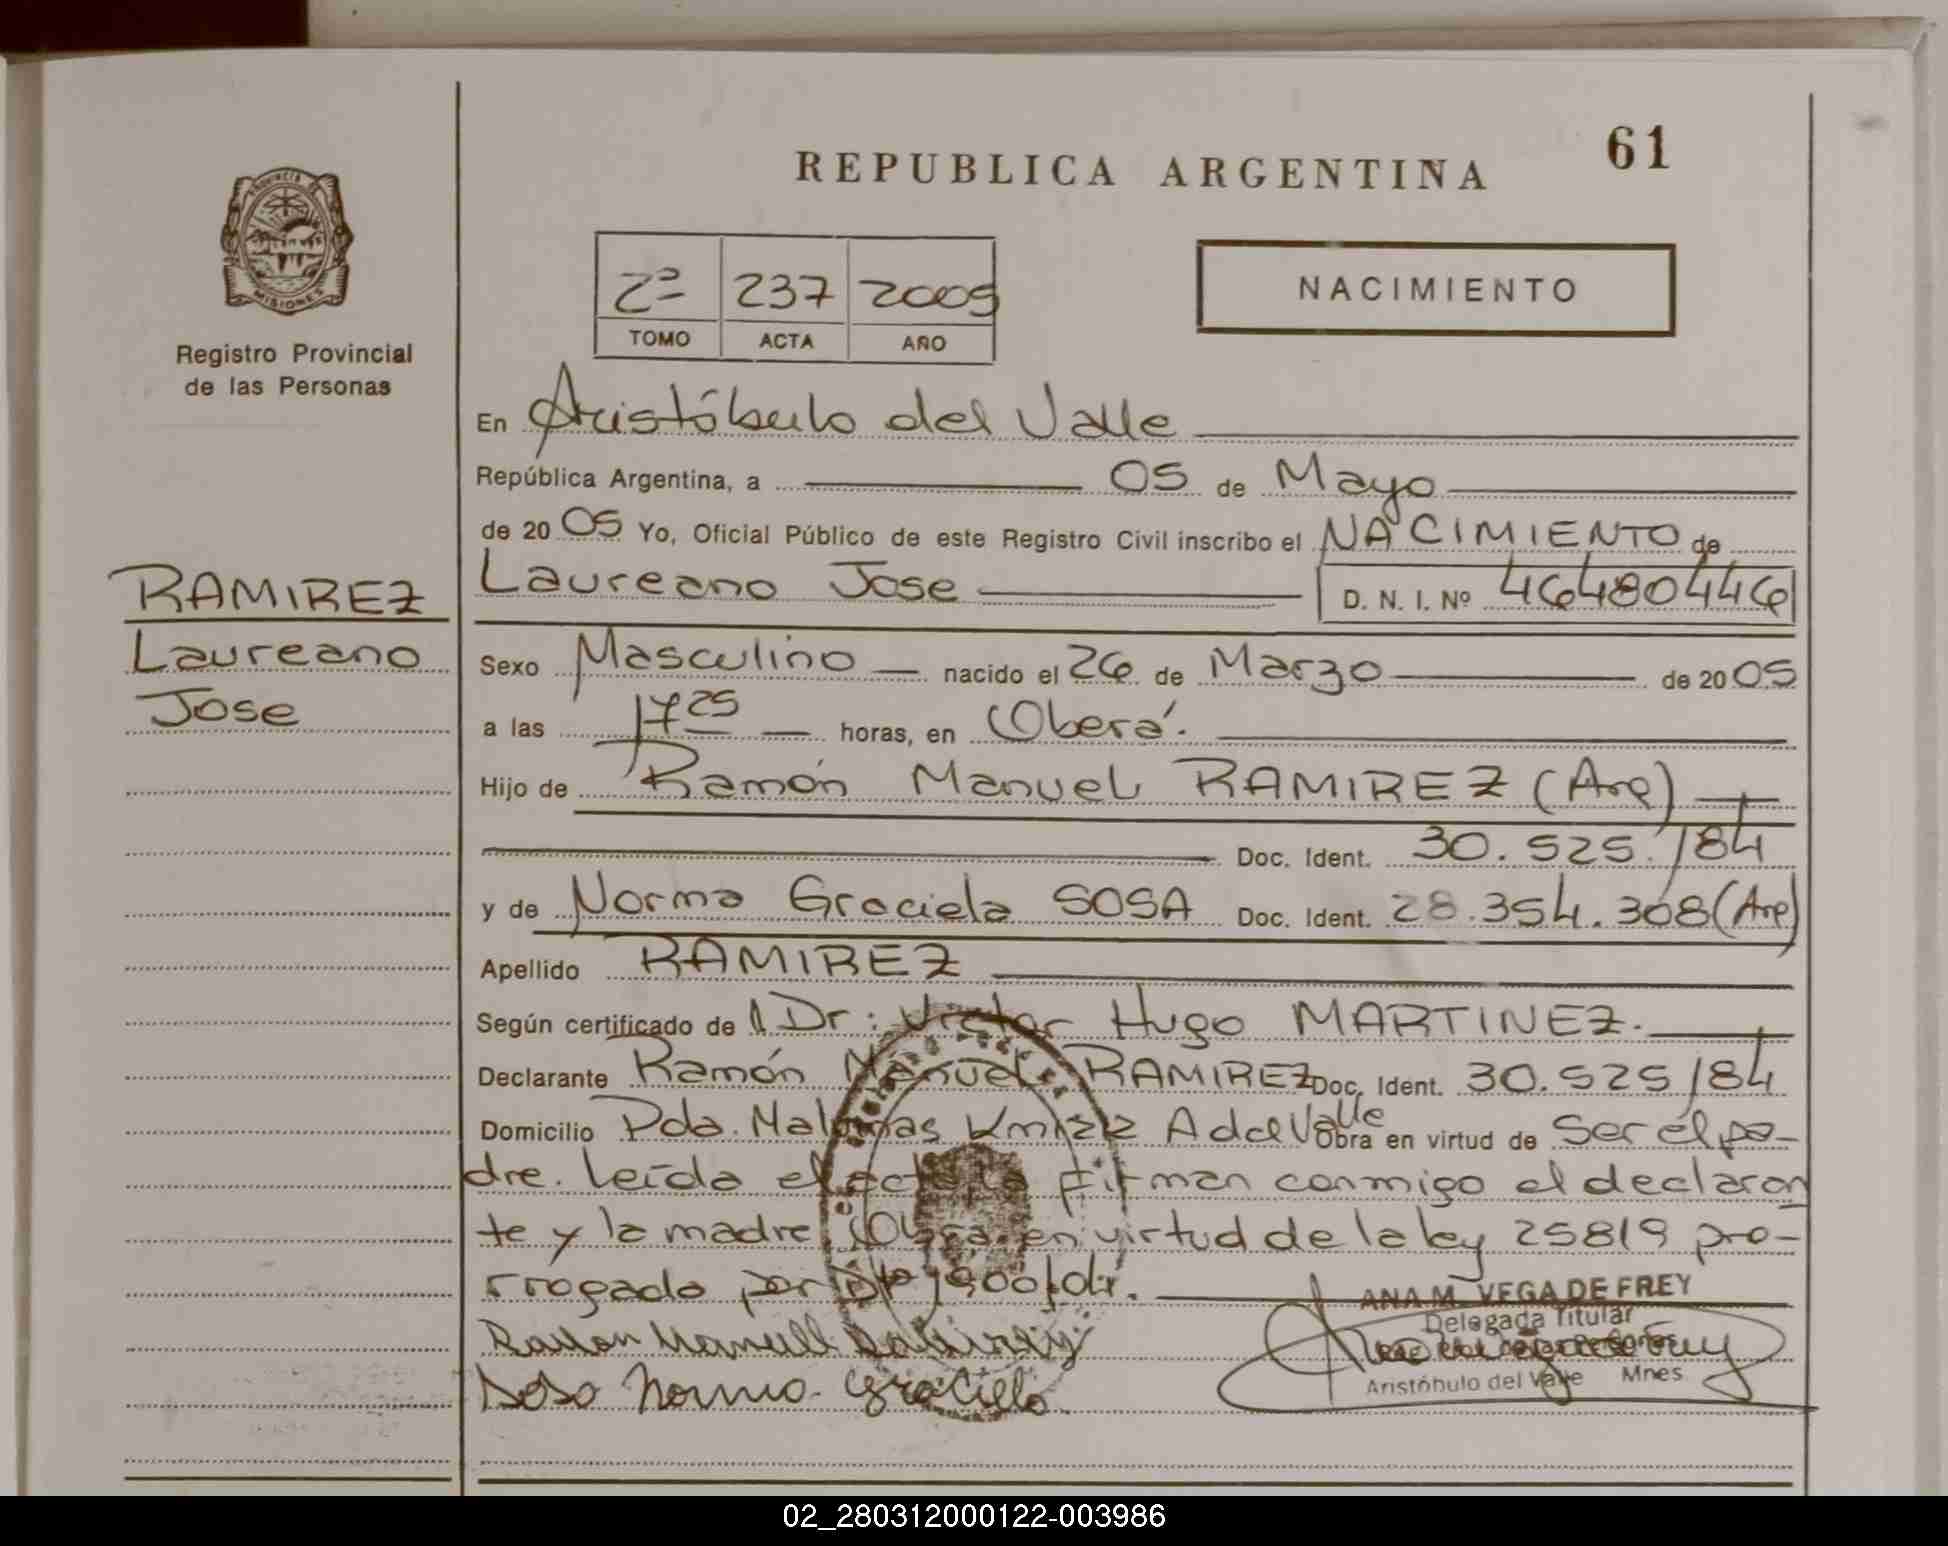 61
REPUBLICA ARGENTINA
PROVINCIA DE
MISIONES
Registro Provincial
de las Personas
2º 237 2005
TOMO ACTA AÑO
NACIMIENTO
RAMIREZ
Laureano
Jose
En Aristóbulo del Valle
República Argentina, a 05 de Mayo
de 2005 Yo, Oficial Público de este Registro Civil inscribo el NACIMIENTO de
Laureano Jose D. N. I. Nº 46480446
Sexo Masculino nacido el 26 de Marzo de 2005
a las 17 25 horas, en Oberá.
Hijo de Ramón Manuel RAMIREZ (Arg)
Doc. Ident. 30.525.184
y de Norma Graciela SOSA Doc. Ident. 28.354.308 (Arg)
Apellido RAMIREZ
Según certificado de Dr: Victor Hugo MARTINEZ.
Declarante Ramón Manuel RAMIREZ Doc. Ident. 30.525184
Domicilio Pda. Malvinas Km122 A del Valle Obra en virtud de Ser el pa-
dre. Leída el acta la firman conmigo el declaran
te y la madre. Obra en virtud de la ley 25819 pro-
rrogada por 1900/04.
Ramon Manuel Ramirez
Sosa Norma Graciela
ANA M. VEGA DE FREY
Delegada Titular
Aristóbulo del Valle Mnes
02_280312000122-003986